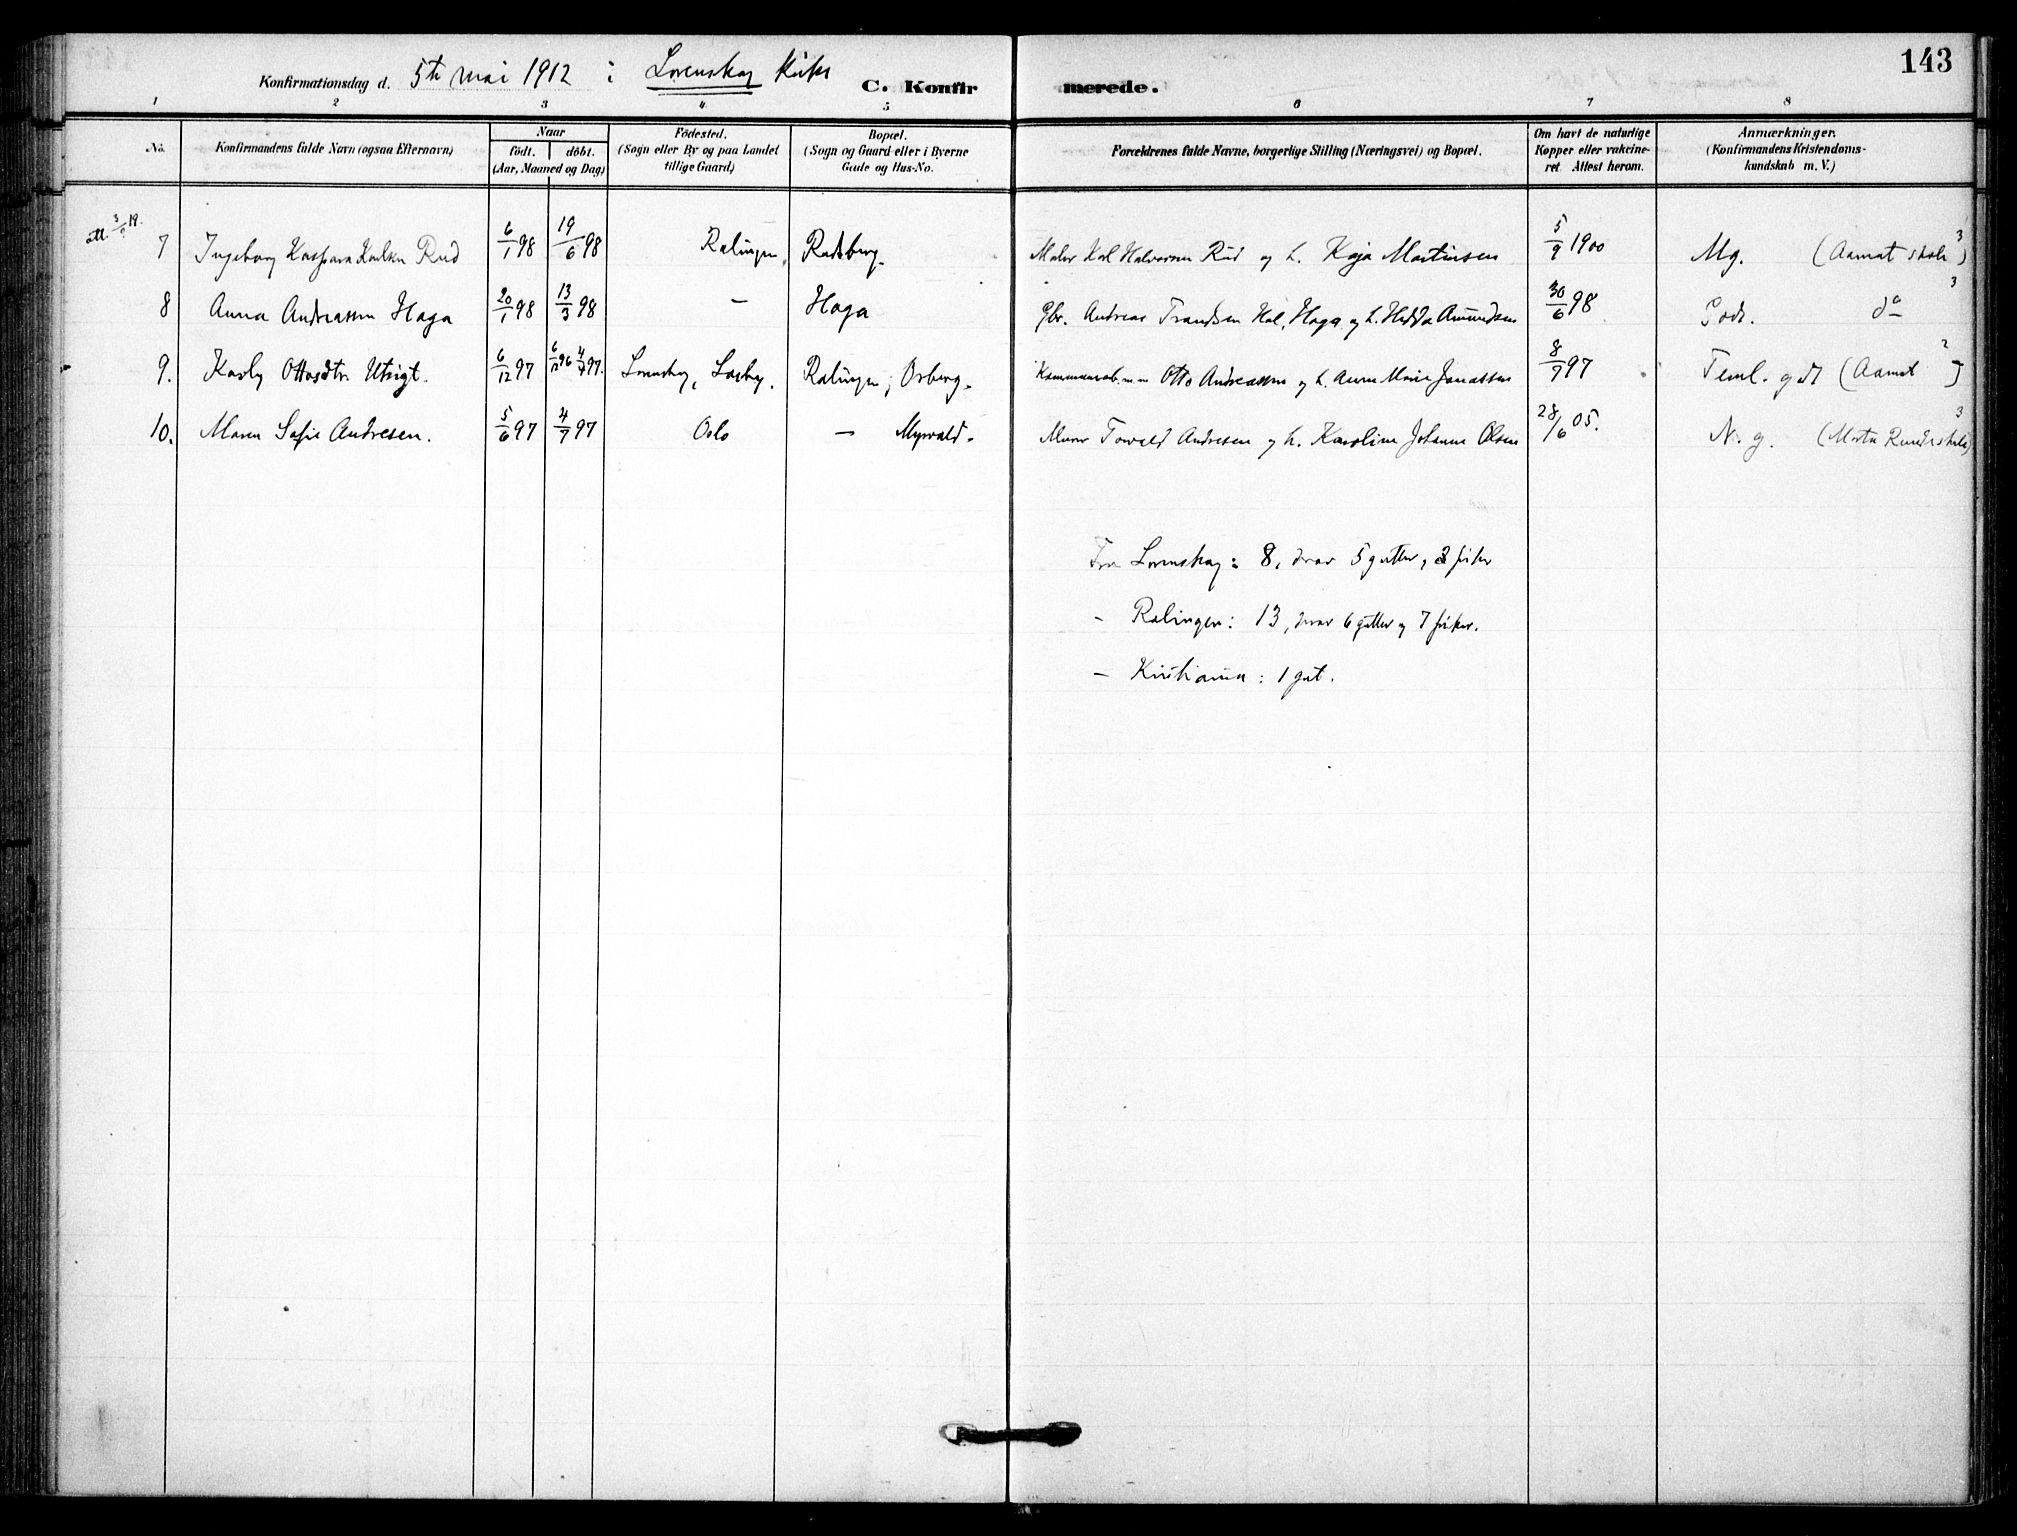 143
Konfirmationsdag d. 5te mai 1912 i Lørenskog kirke
C. Konfir merede.
1 2 3 4 5 6 7 8
No.
Konfirmandens fulde Navn (ogsaa Efternavn)
Naar
født. døbt.
(Aar, Maaned og Dag)
Fødested.
(Sogn eller By og paa Landet
tillige Gaard)
Bopæl.
(Sogn og Gaard eller i Byerne
Gade og Hus-No.
Forældrenes fulde Navne, borgerlige Stilling (Næringsvei) og Bopæl.
Om havt de naturlige
Kopper eller vakcine-
ret. Attest herom.
Anmærkninger.
(Konfirmandens Kristendoms-
kundskab m. V.)
att. 3/9 19.
7 Ingeborg Kaspara Karlsen Rud 6/1 98 19/6 98 Ralingen, Rudsberg. Maler Karl Halvorsen Rud og h. Kaja Martinsen 5/9 1900 Mg. (Aamot skole 3)
8 Anna Andreassen Haga 20/1 98 13/3 98 — Haga Gbr. Andreas Trandsen Hol, Haga og h. Hedda Amundsen 30/6 98 Godt. do 3
9. Kasly Ottosdtr. Utsigt. 6/12 97 4/7 97. Lørenskog, Losby. Ralingen; Orberg. Otto Andreassen og h. Anne Marie Jonassen 8/7 97 Teml. godt (Aamot 2)
10. Maren Sofie Andresen. 5/6 97 4/7 97 Oslo — Myrvold. Murer Torvald Andresen og h. Karoline Johanne Olsen 28/6 05. N. g. (Marta Runds skole) 3
Fra Lørenskog: 8, derav 5 gutter, 3 piker
— Ralingen: 13, derav 6 gutter og 7 piker.
— Kristiania: 1 gut.